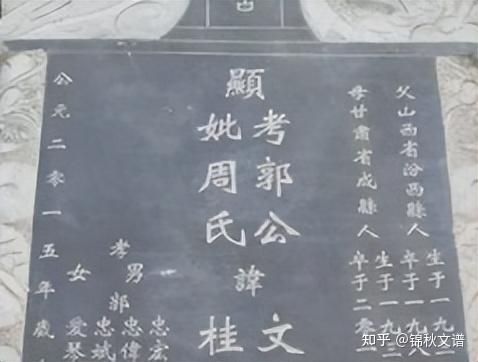 父山西省汾西縣人
生于一九
卒于一九
母甘肅省成縣人
生于一九
卒于二零
顯
考郭公
妣周氏
諱
文
桂
孝男郭
忠宏
忠偉
忠斌
女
愛琴
公元二零一五年歲
知乎 @锦秋文谱